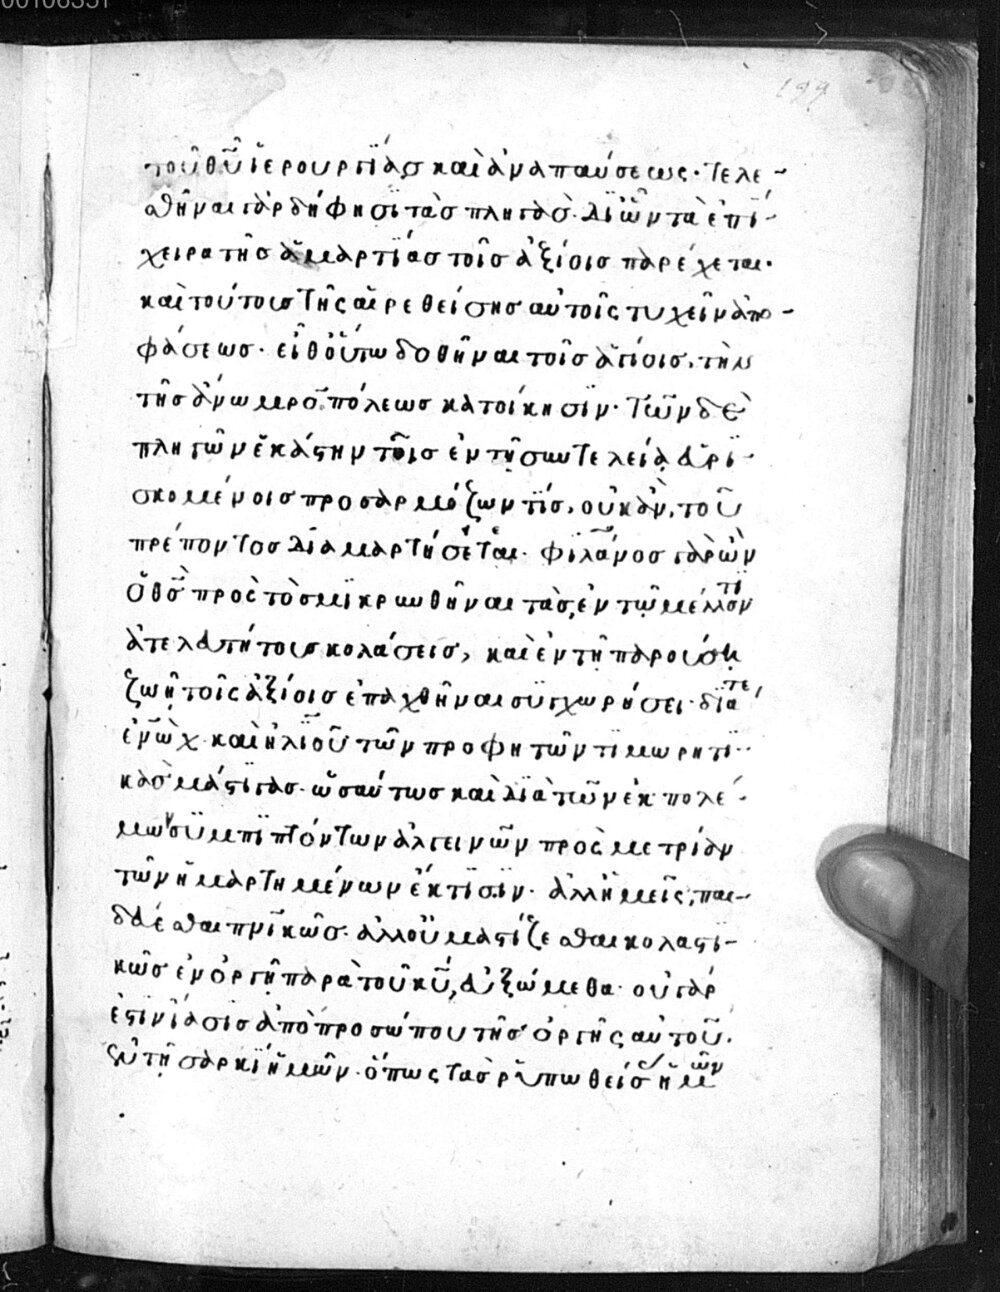 00106351
199
τοῦ θῦ ἱερουργίασ καὶ ἀναπαύσεως· τελε-
σθῆναι γὰρ δή φησϊ τὰσ πληγὰσ· δϊ ὧν τὰ ἐπϊ-
χειρα τῆσ ἁμαρτίασ τοῖσ ἀξίοισ παρέχεται·
καὶ τούτοισ τῆς αἱρεθείσησ αὐτοῖς τυχεῖν ἀπο-
φάσεωσ· εἶθ οὕτω δοθῆναι τοῖσ ἁγίοισ, τὴν
τῆσ ἄνω μρσ πόλεωσ κατοίκησϊν· τῶν δὲ
πληγῶν ἑκάστην τοῖσ ἐν τῇ συντελείᾳ εὑρϊ-
σκομένοισ προσαρμόζων τϊσ, οὐκ ἂν, τοῦ
πρέποντοσ διαμαρτήσεται· φϊλανοσ γὰρ ὢν
ὁ θσ πρὸς τὸ σμϊκρυνθῆναι τὰσ, ἐν τῶ μέλλοντϊ
ἀτελευτήτουσ κολάσεισ, καὶ ἐν τῆ παρούση
ζωῆ τοῖς ἀξίοισ ἐπαχθῆναι συγχωρήσει· δϊά τε,
ἐνὼχ καὶ ἠλιοῦ τῶν προφητῶν τϊμωρητϊ-
κὰσ μάστϊγασ· ὡσαύτωσ καὶ δϊὰ τῶν ἐκ πολέ-
μων συμπϊπτόντων ἀλγεινῶν πρὸς μετρίαν
τῶν ἡμαρτημένων ἔκτϊσϊν· ἀλλ ἡμεῖς, παι-
δεύεσθαι πρικῶσ· ἀλλ οὐ μαστίζεσθαι κολαστϊ-
κῶσ ἐν ὀργῆ παρὰ τοῦ κυ, εὐξώμεθα· οὐ γάρ
ἐστϊν ἴασϊσ ἀπὸ προσώπου τῆσ ὀργῆς αὐτοῦ,
ἐν τῆ σαρκϊ ἡμῶν· ὅπως τὰσ ῥυπωθείσ ἡμῶν